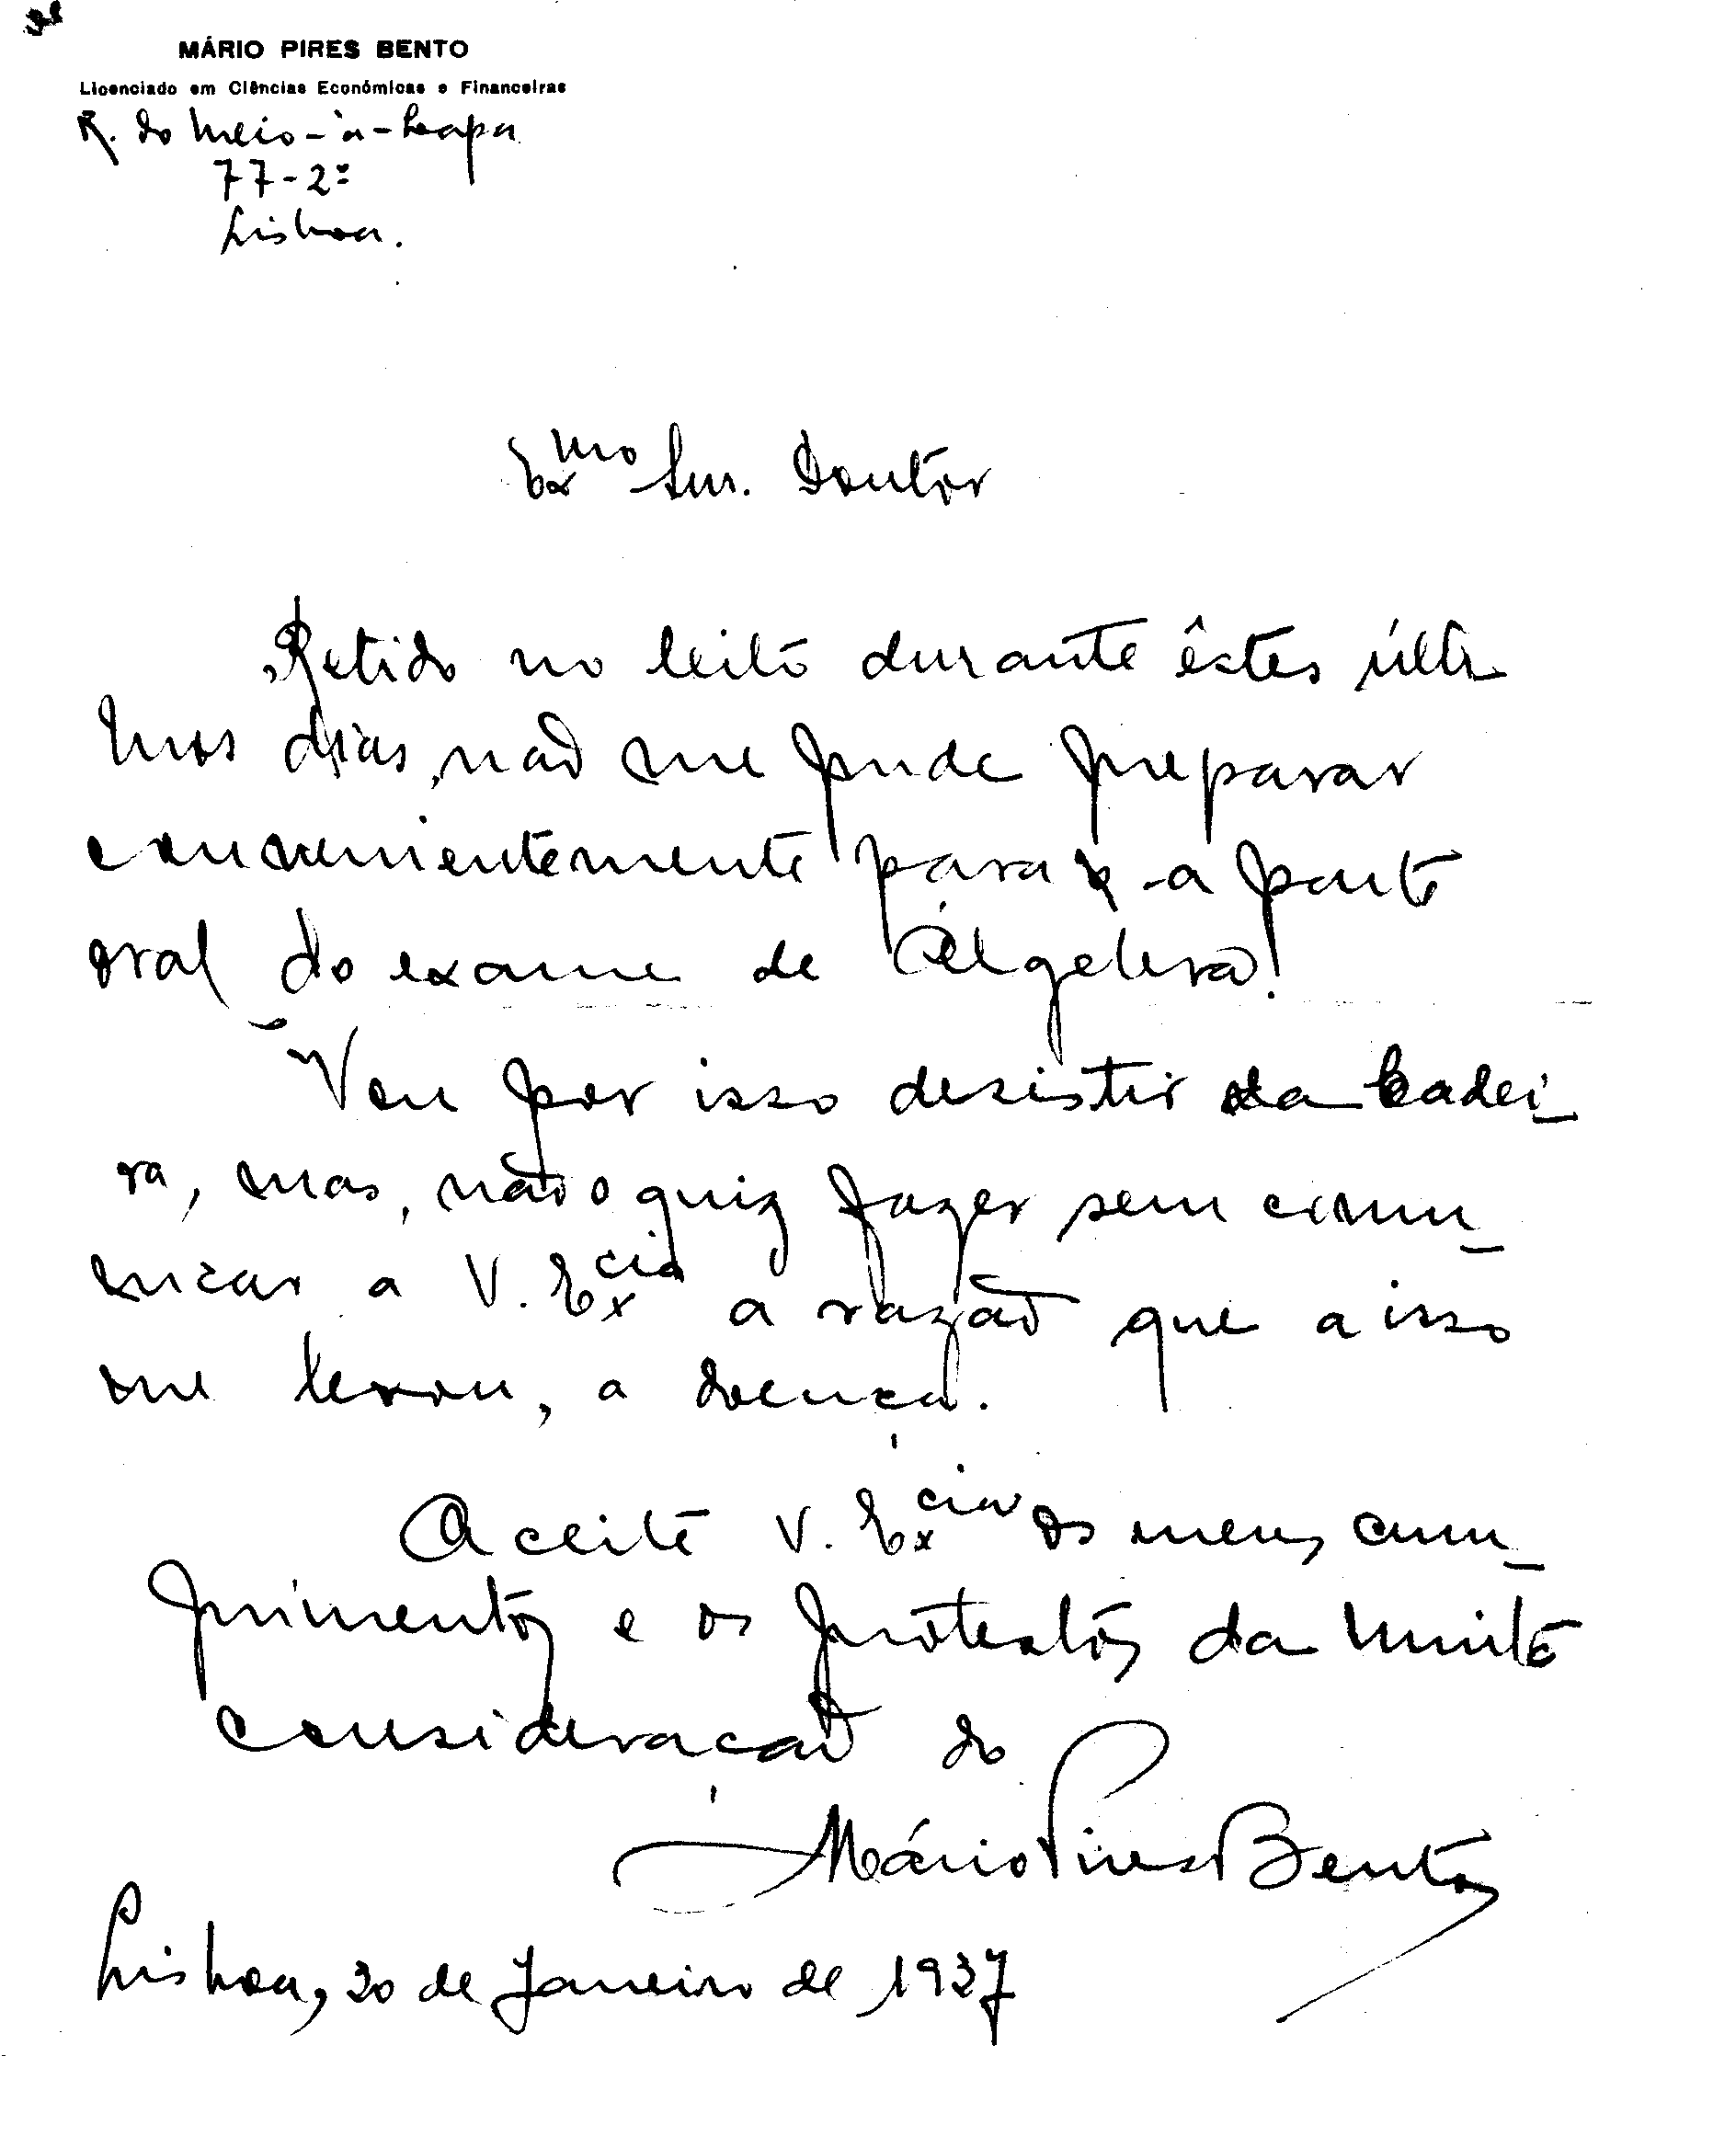 MÁRIO PIRES BENTO
Licenciado em Ciências Económicas e Financeiras
R. do Meio-à-Lapa
77-2º
Lisboa.
Exmo Snr. Doutor
Retido no leito durante êstes últi
mos dias, não me pude preparar
convenientemente para a parte
oral do exame de Álgebra.
Vou por isso desistir da cadei-
ra, mas, não o quiz fazer sem comu-
nicar a V. Excia a razão que a isso
me levou, a doença.
Aceite V. Excia os meus cum-
primentos e os protestos da muita
consideração do
Mário Pires Bento
Lisboa, 20 de Janeiro de 1937